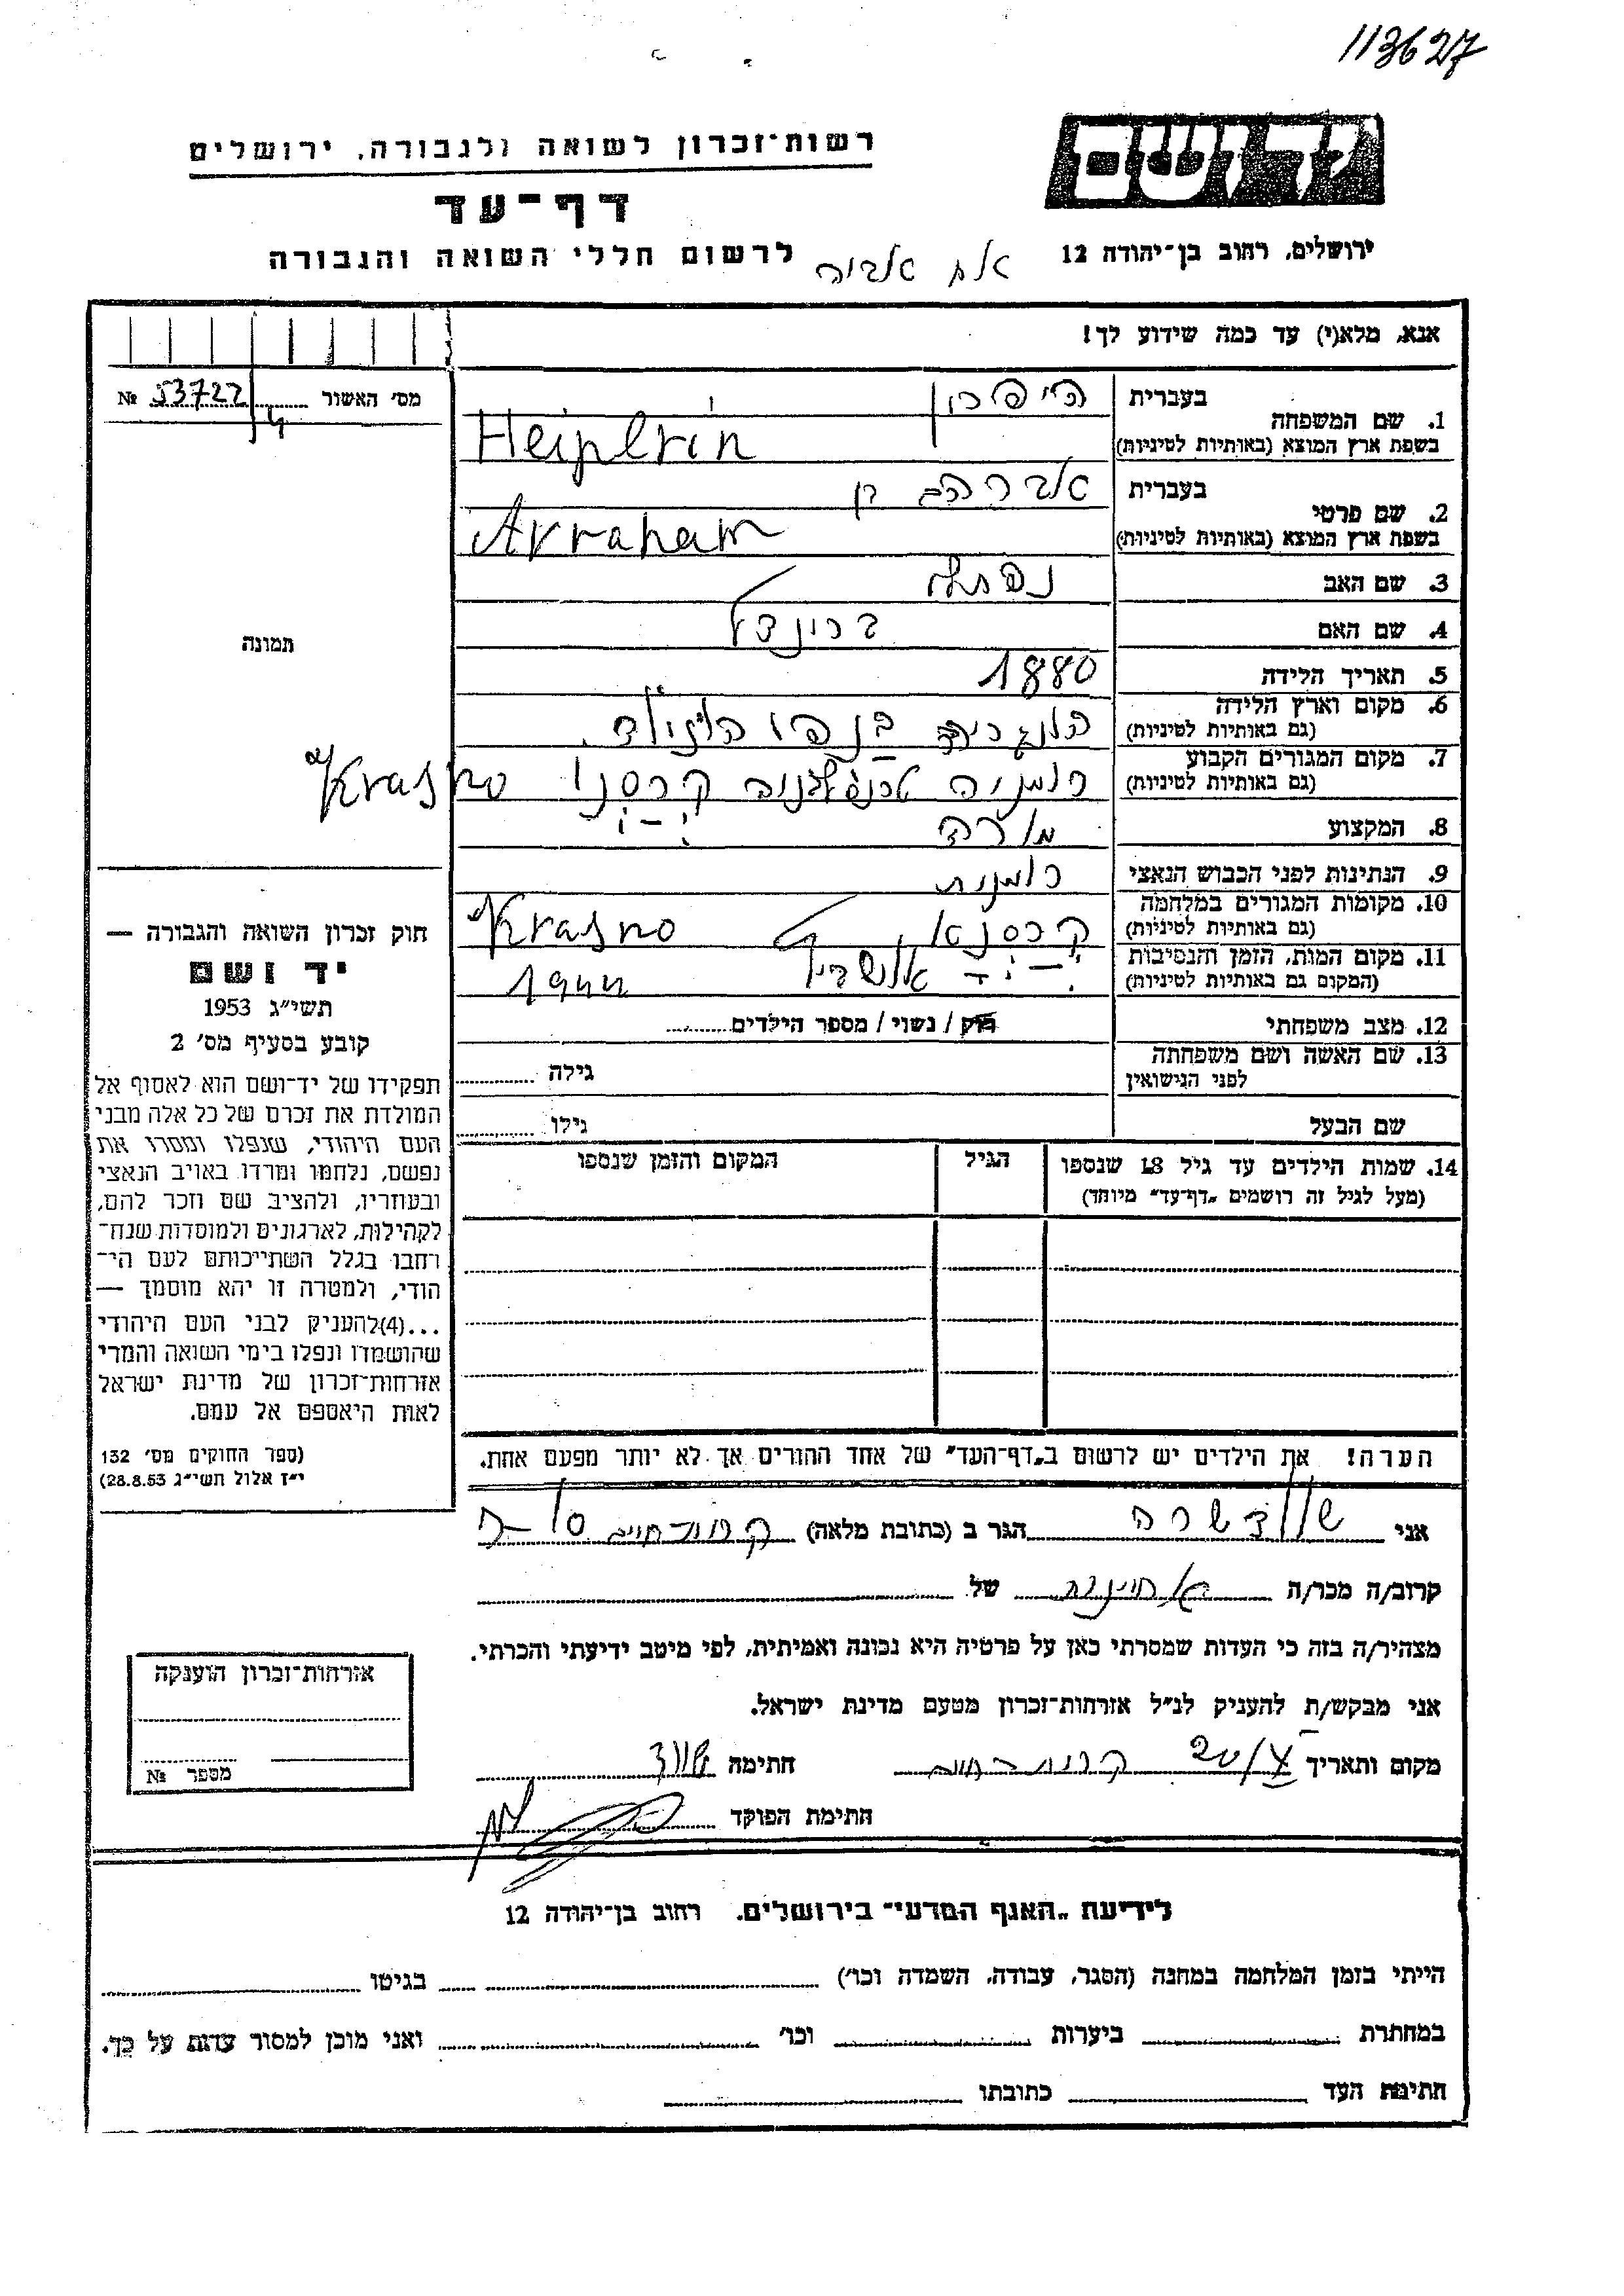 113627
יד ושם
רשות־זכרון לשואה ולגבורה, ירושלים
דף־עד
לרשום חללי השואה והגבורה
ירושלים, רחוב בן־יהודה 12
אנא, מלא(י) עד כמה שידוע לך!
מס׳ האשור № 53722
1. שם המשפחה
בעברית
בשפת ארץ המוצא (באותיות לטיניות) Heiplrin
2. שם פרטי
בעברית אברהם
בשפת ארץ המוצא (באותיות לטיניות) Avraham
3. שם האב נפתלי
4. שם האם בריינדל
תמונה
5. תאריך הלידה 1880
6. מקום וארץ הלידה
(גם באותיות לטיניות)
7. מקום המגורים הקבוע רומניה קרסנו Krasno
(גם באותיות לטיניות)
8. המקצוע מורה
9. הנתינות לפני הכבוש הנאצי רומנית
10. מקומות המגורים במלחמה קרסנא Krasno
(גם באותיות לטיניות)
11. מקום המות, הזמן והנסיבות אושביץ 1944
(המקום גם באותיות לטיניות)
12. מצב משפחתי רוק / נשוי / מספר הילדים
13. שם האשה ושם משפחתה גילה
לפני הנישואין
שם הבעל גילו
14. שמות הילדים עד גיל 18 שנספו הגיל המקום והזמן שנספו
(מעל לגיל זה רושמים „דף־עד״ מיוחד)
חוק זכרון השואה והגבורה —
יד ושם
תשי״ג 1953
קובע בסעיף מס׳ 2
תפקידו של יד־ושם הוא לאסוף אל
המולדת את זכרם של כל אלה מבני
העם היהודי, שנפלו ומסרו את
נפשם, נלחמו ומרדו באויב הנאצי
ובעוזריו, ולהציב שם וזכר להם,
לקהילות, לארגונים ולמוסדות שנח־
רחבו בגלל השתייכותם לעם הי־
הודי, ולמטרה זו יהא מוסמך —
...(4) להעניק לבני העם היהודי
שהושמדו ונפלו בימי השואה והמרי
אזרחות־זכרון של מדינת ישראל
לאות היאספם אל עמם.
(ספר החוקים מס׳ 132
י״ז אלול תשי״ג 28.8.53)
הערה! את הילדים יש לרשום ב„דף־העד״ של אחד ההורים אך לא יותר מפעם אחת.
אני שרה הגר ב (כתובת מלאה)
קרוב/ה מכר/ה של
מצהיר/ה בזה כי העדות שמסרתי כאן על פרטיה היא נכונה ואמיתית, לפי מיטב ידיעתי והכרתי.
אני מבקש/ת להעניק לנ״ל אזרחות־זכרון מטעם מדינת ישראל.
מקום ותאריך חתימה
חתימת הפוקד
אזרחות־זכרון הוענקה
מספר №
לידיעת „האגף המדעי״ בירושלים, רחוב בן־יהודה 12
הייתי בזמן המלחמה במחנה (הסגר, עבודה, השמדה וכו׳) בגיטו
במחתרת ביערות וכו׳ ואני מוכן למסור עדות על כך.
חתימת העד כתובתו